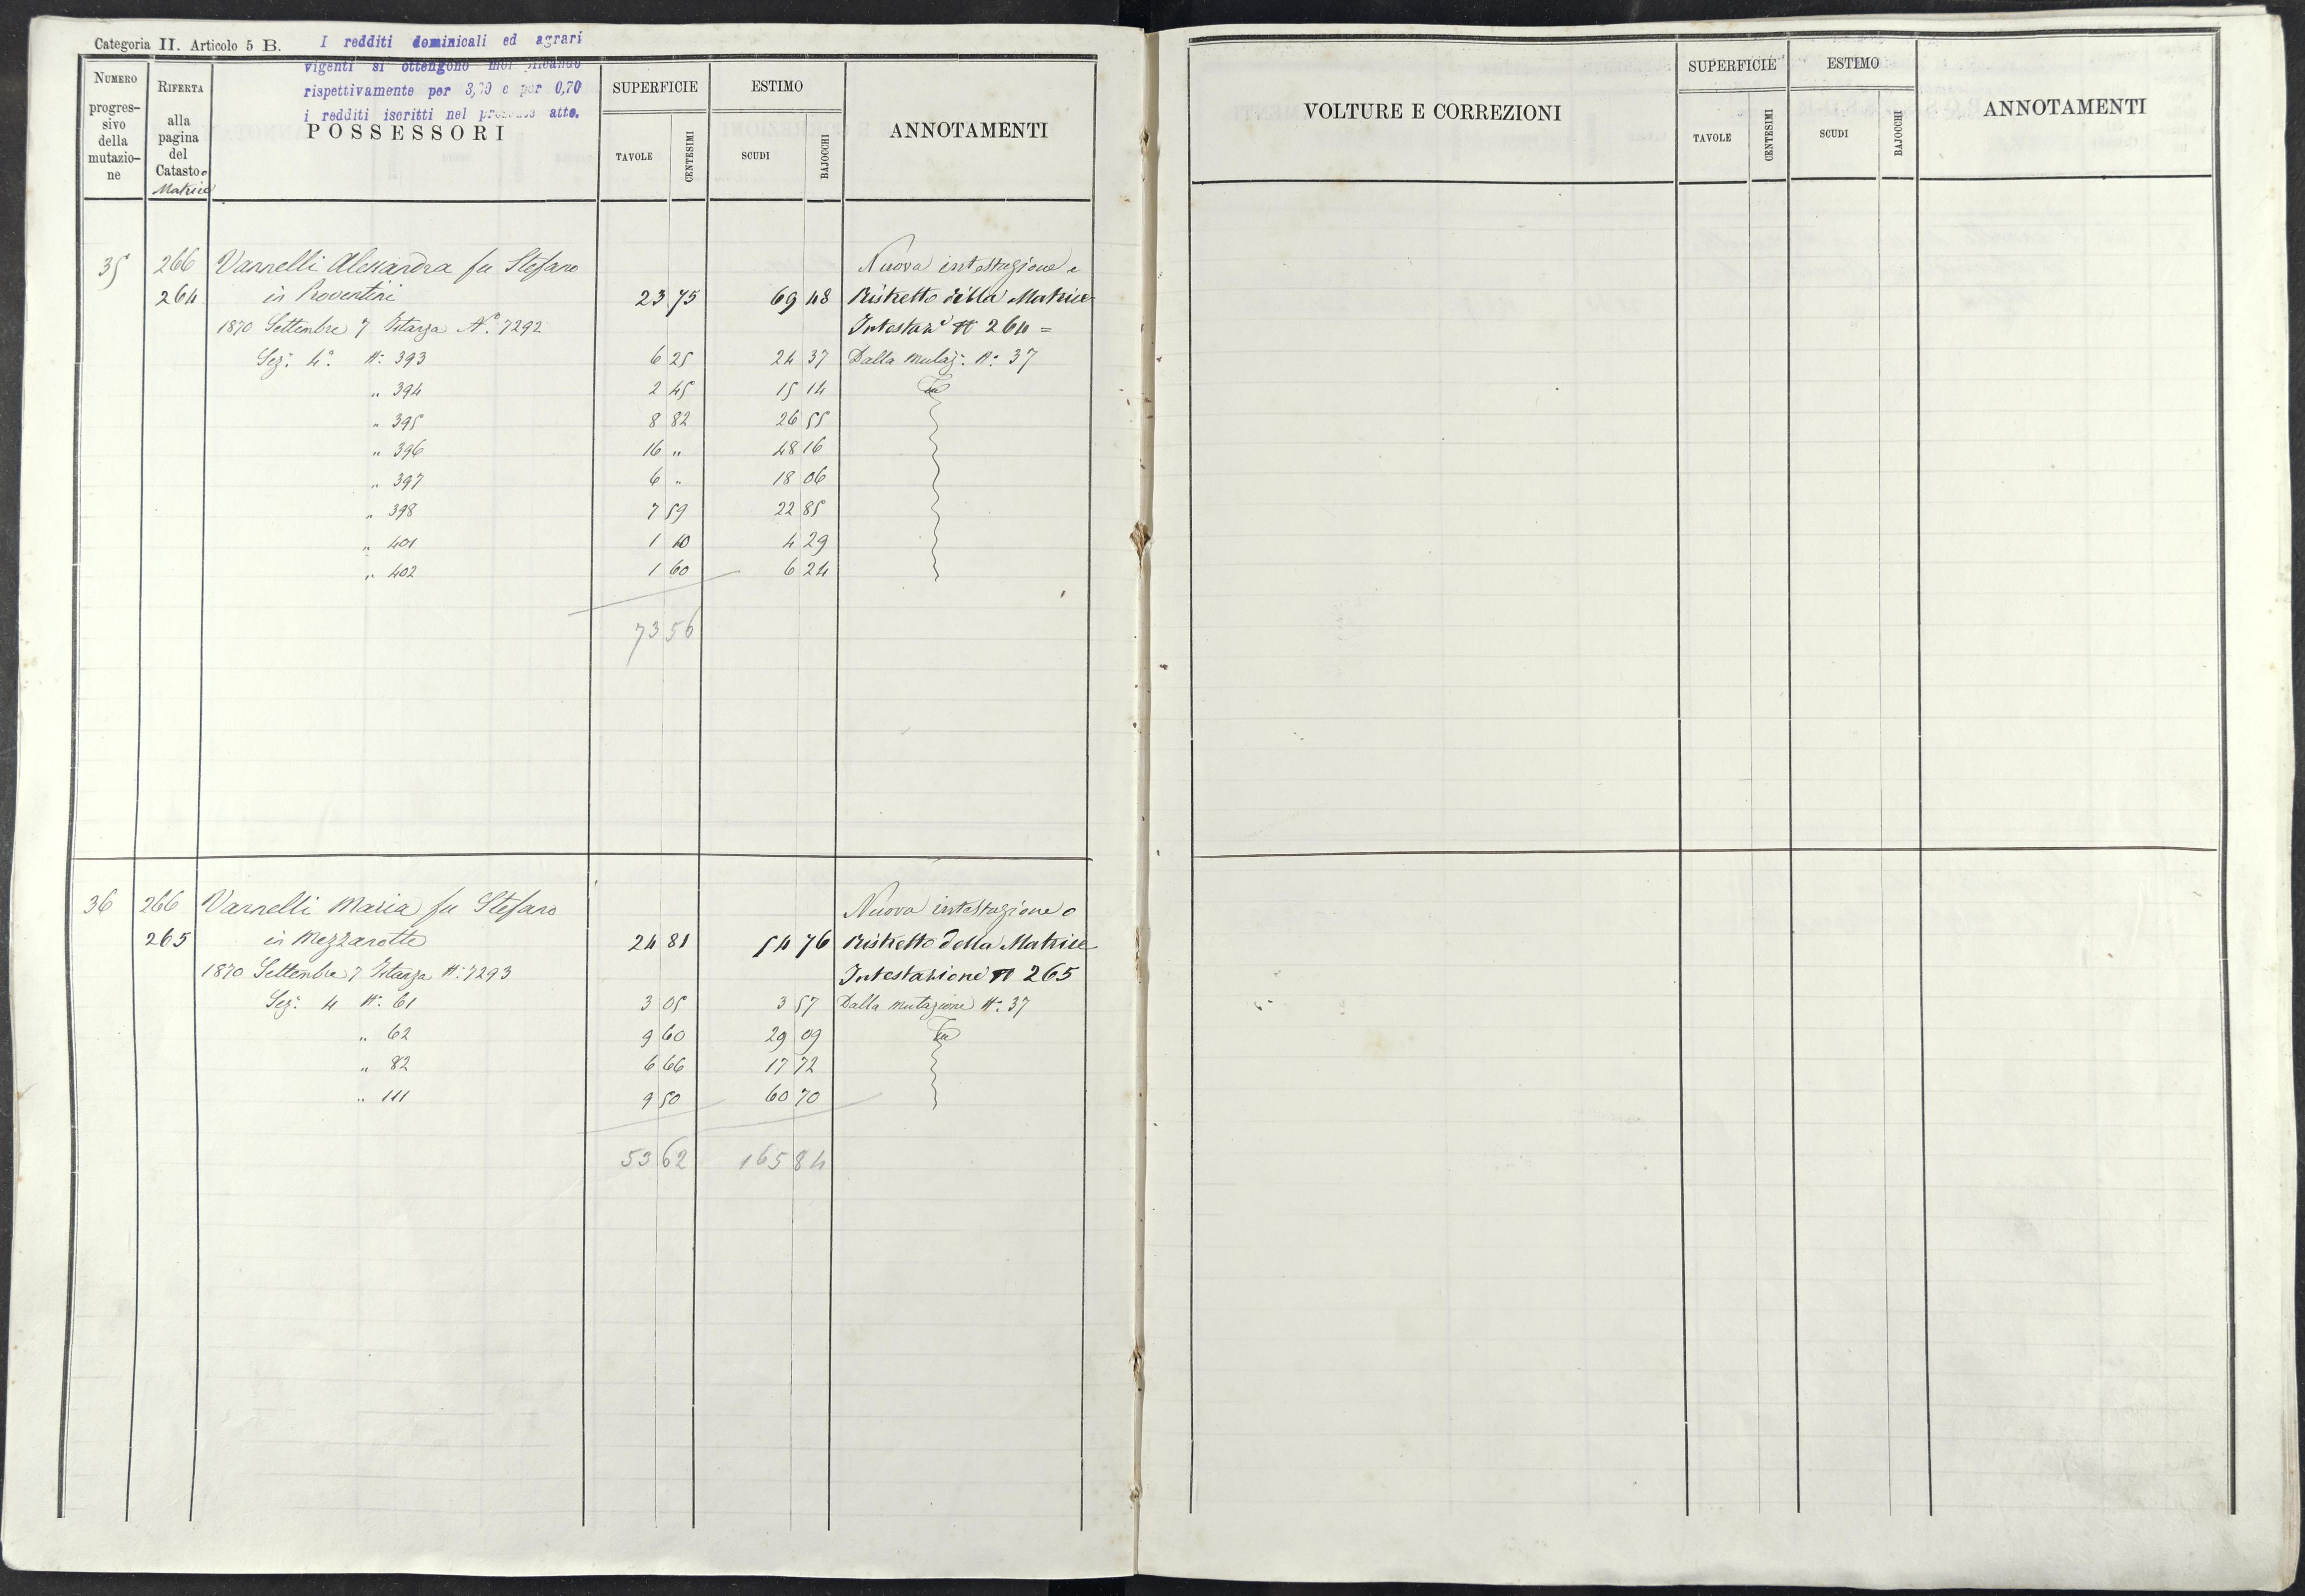 Categoria II. Articolo 5 B.
I redditi dominicali ed agrari
vigenti si ottengono
rispettivamente per 3,70 e per 0,70
i redditi iscritti nel presente atto.
NUMERO progressivo della mutazione
RIFERTA alla pagina del Catasto Matrice
POSSESSORI
SUPERFICIE
TAVOLE
CENTESIMI
ESTIMO
SCUDI
BAJOCCHI
ANNOTAMENTI
35 266 Vannelli Alessandra fu Stefano Nuova intestazione e
264 in Roventini 23 75 69 48 Ristretto della Matrice
1870 Settembre 7 Istanza N.° 7292 Intestaz.e N 264 =
Sez: 4.a N: 393 6 25 24 37 Dalla mutaz: N: 37
" 394 2 45 15 14
" 395 8 82 26 55
" 396 16 " 48 16
" 397 6 " 18 06
" 398 7 59 22 85
" 401 1 10 4 29
" 402 1 60 6 24
73 56
36 266 Vannelli Maria fu Stefano Nuova intestazione e
265 in Mezzanotte 24 81 54 76 Ristretto della Matrice
1870 Settembre 7 Istanza N: 7293 Intestazione N 265
Sez: 4 N: 61 3 05 3 57 Dalla mutazione N: 37
" 62 9 60 29 09
" 82 6 66 17 72
" 111 9 50 60 70
53 62 165 84
VOLTURE E CORREZIONI
SUPERFICIE
TAVOLE
CENTESIMI
ESTIMO
SCUDI
BAJOCCHI
ANNOTAMENTI